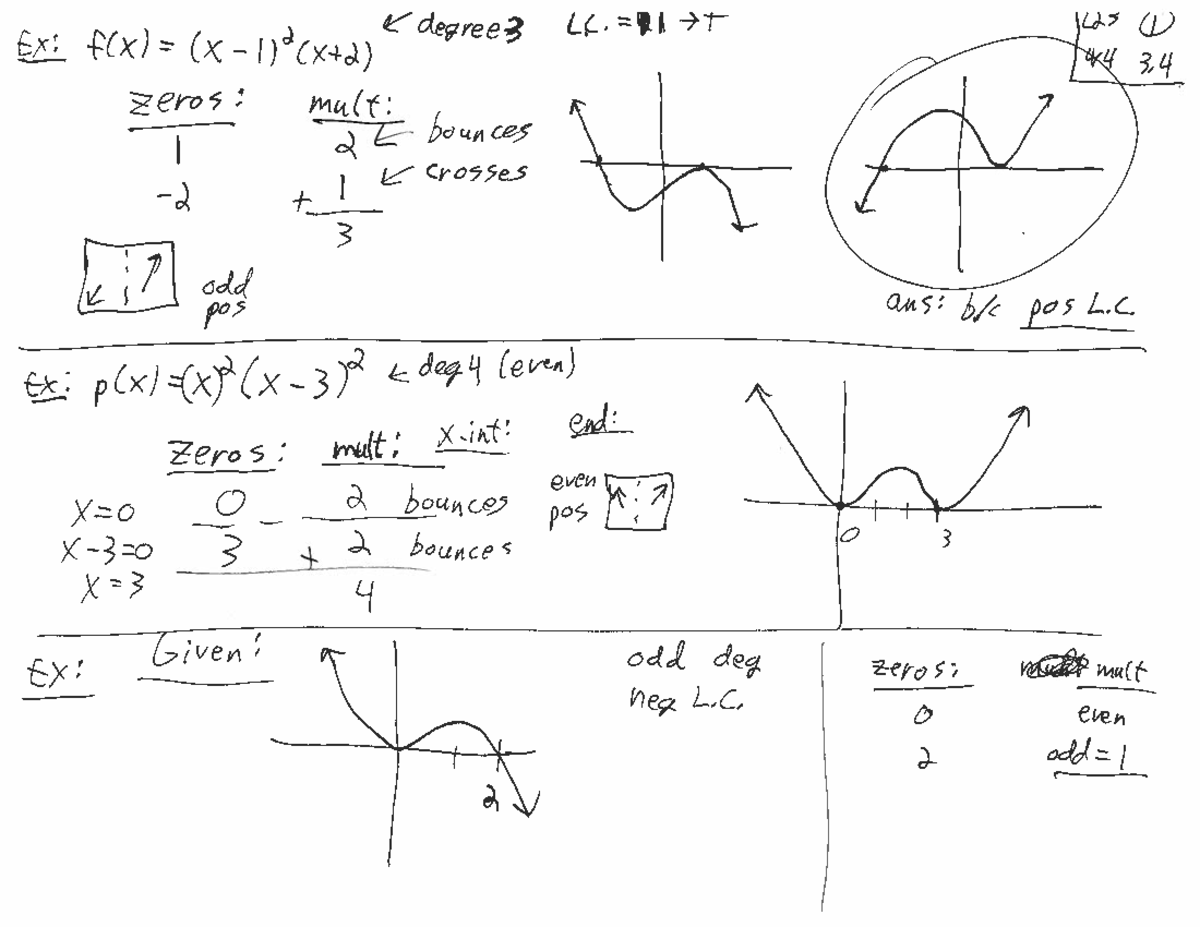 Ex: f(x) = (x-1)²(x+2) ← degree 3 L.C. = 1 → +
zeros: mult:
1 2 ← bounces
-2 + 1 ← crosses
3
odd
pos
ans: b/c pos L.C.
L25 ①
44 3,4
Ex: p(x) = (x)²(x-3)² ← deg 4 (even)
zeros: mult: x-int: end:
x=0 0 - 2 bounces
x-3=0 3 + 2 bounces
x=3 4
even
pos
0 3
Ex: Given:
2
odd deg
neg L.C.
zeros: mult
0 even
2 odd = 1